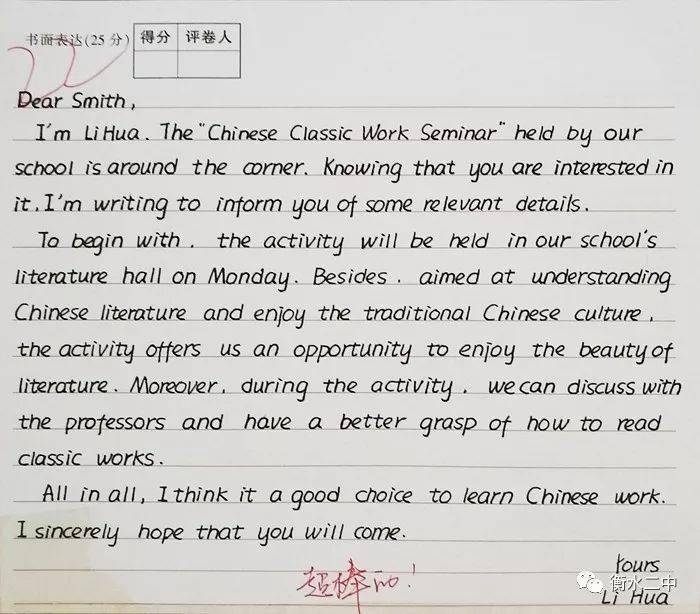 书面表达(25分)
得分 评卷人
22
Dear Smith,
I'm Li Hua. The "Chinese Classic Work Seminar" held by our
school is around the corner. Knowing that you are interested in
it, I'm writing to inform you of some relevant details.
To begin with, the activity will be held in our school's
literature hall on Monday. Besides, aimed at understanding
Chinese literature and enjoy the traditional Chinese culture,
the activity offers us an opportunity to enjoy the beauty of
literature. Moreover, during the activity, we can discuss with
the professors and have a better grasp of how to read
classic works.
All in all, I think it a good choice to learn Chinese work.
I sincerely hope that you will come.
Yours
Li Hua
超棒的!
衡水二中